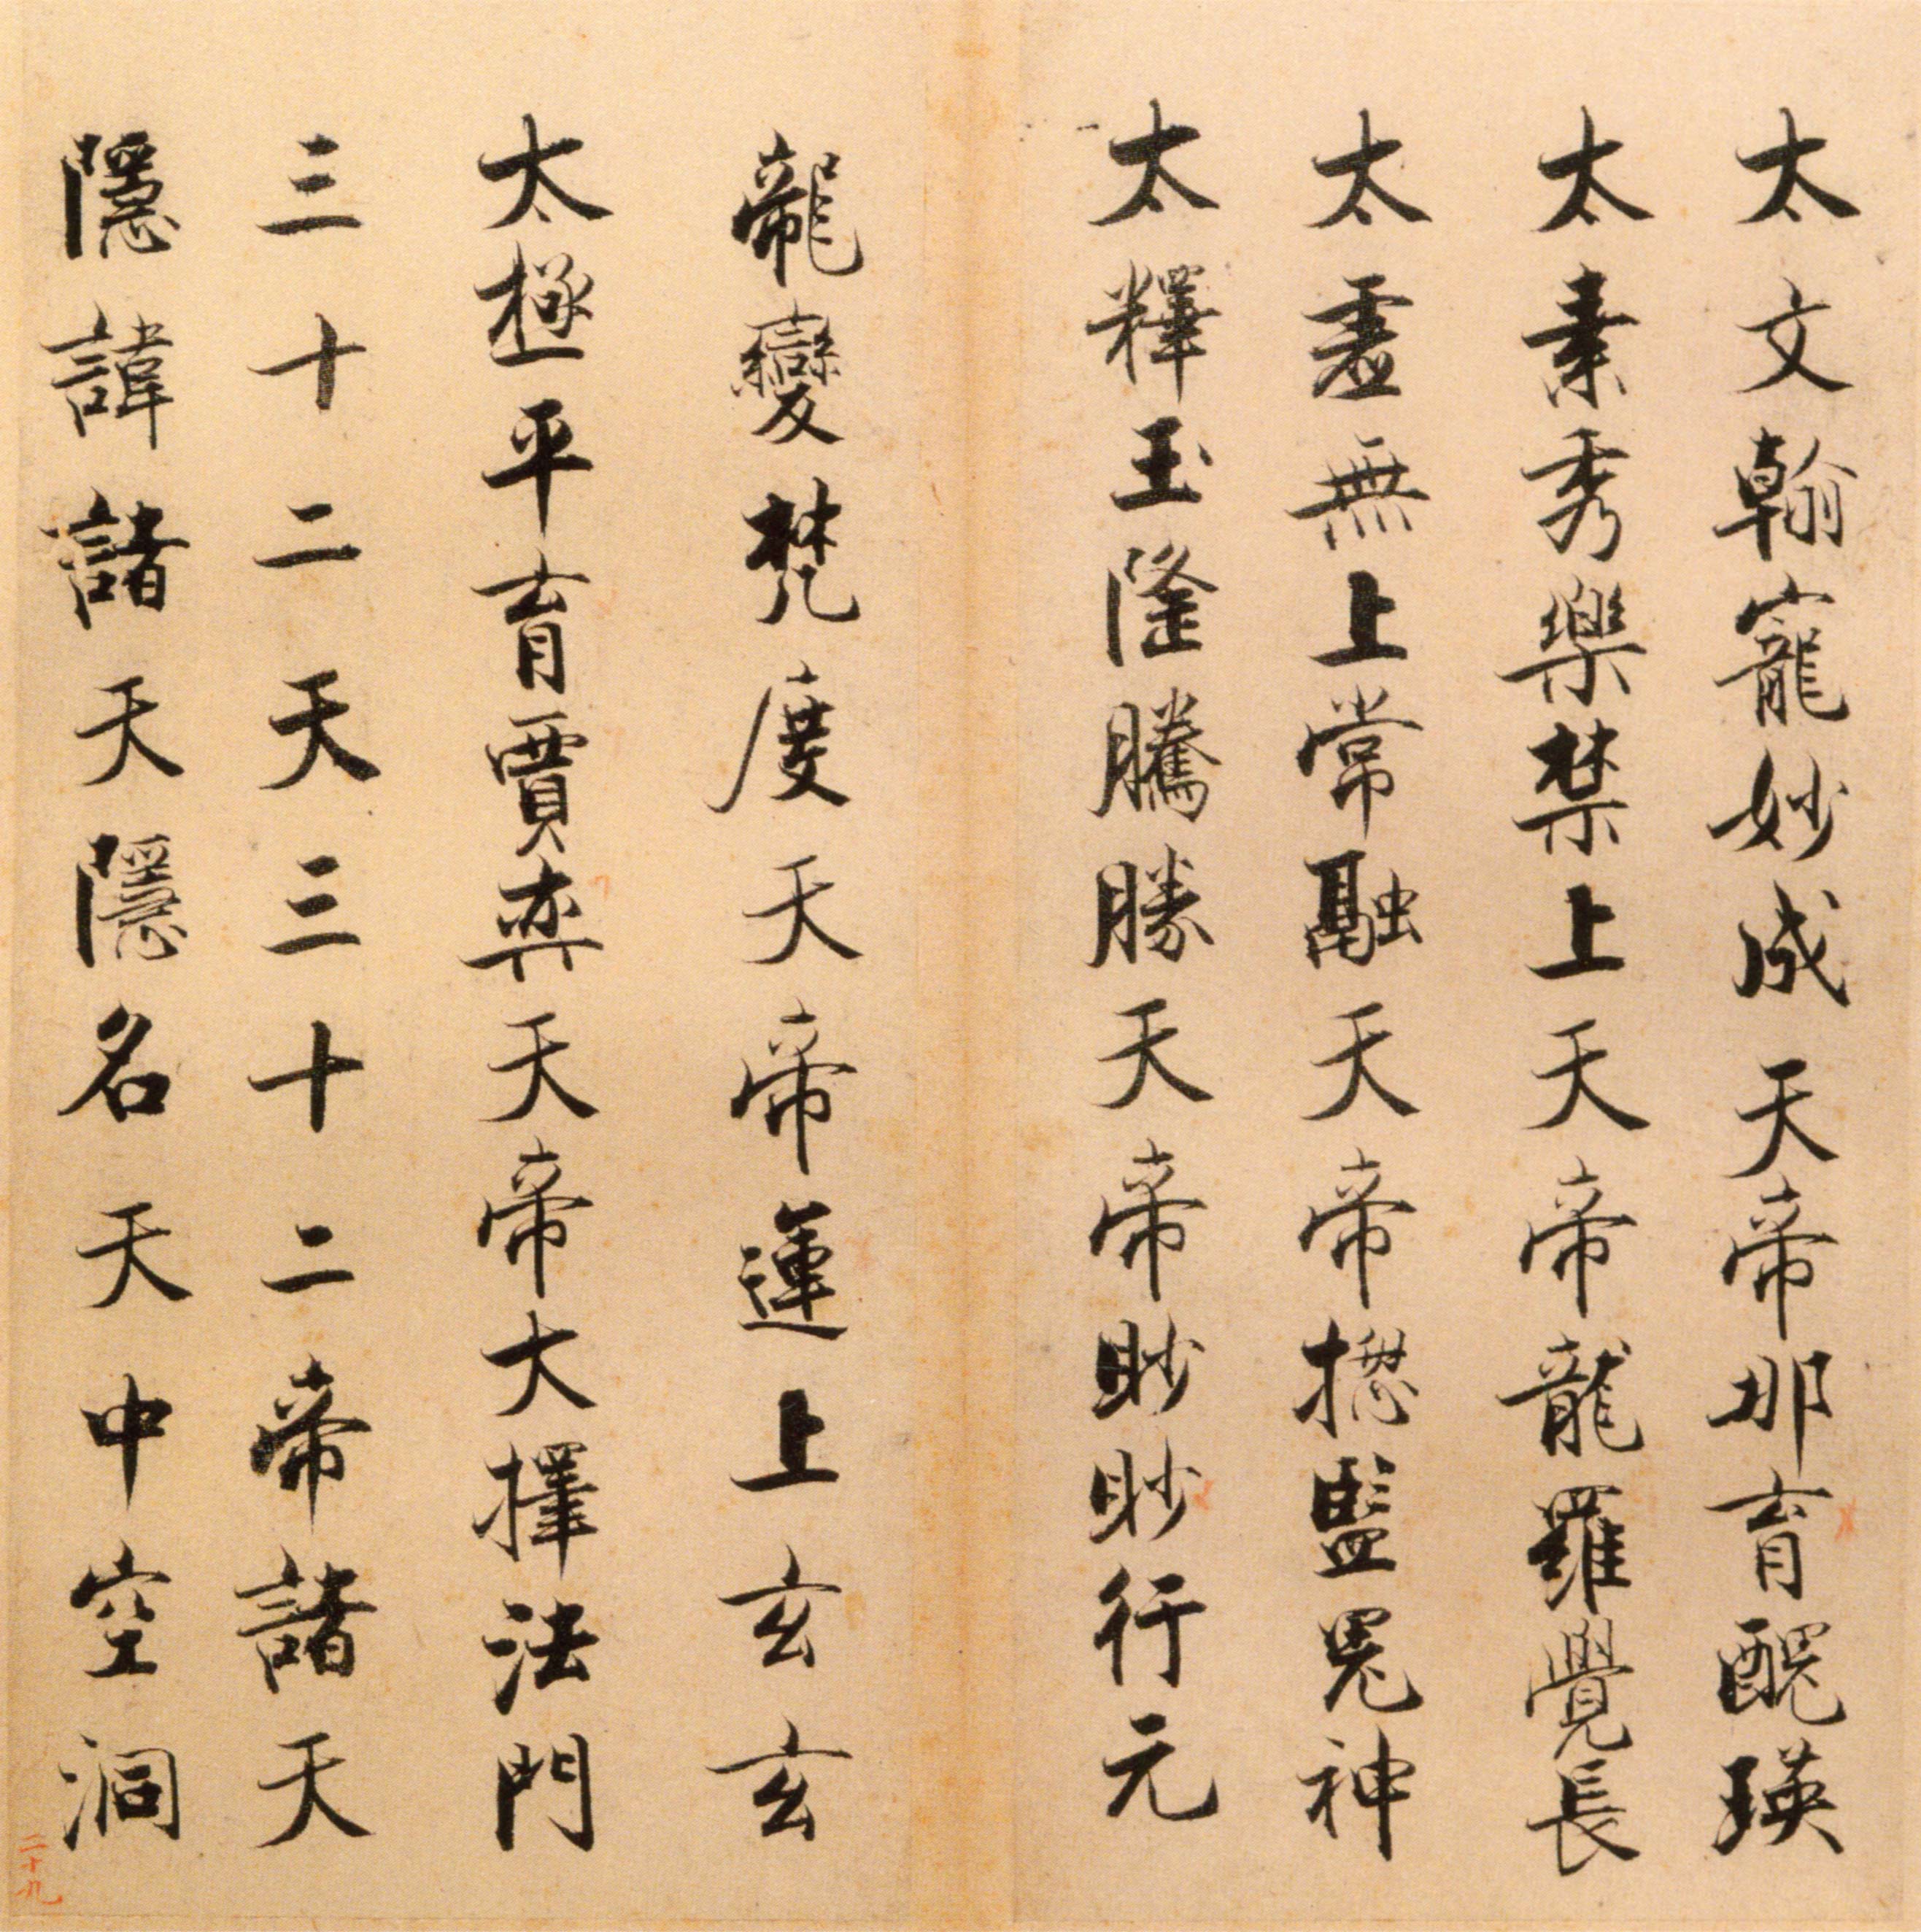 太文翰寵妙成天帝那育醜瑛
太素秀樂禁上天帝龍羅覺長
太虛無上常融天帝揔監鬼神
太釋玉隆騰勝天帝眇眇行元
龍變梵度天帝運上玄玄
太極平育賈弈天帝大擇法門
三十二天三十二帝諸天
隱諱諸天隱名天中空洞
二十九